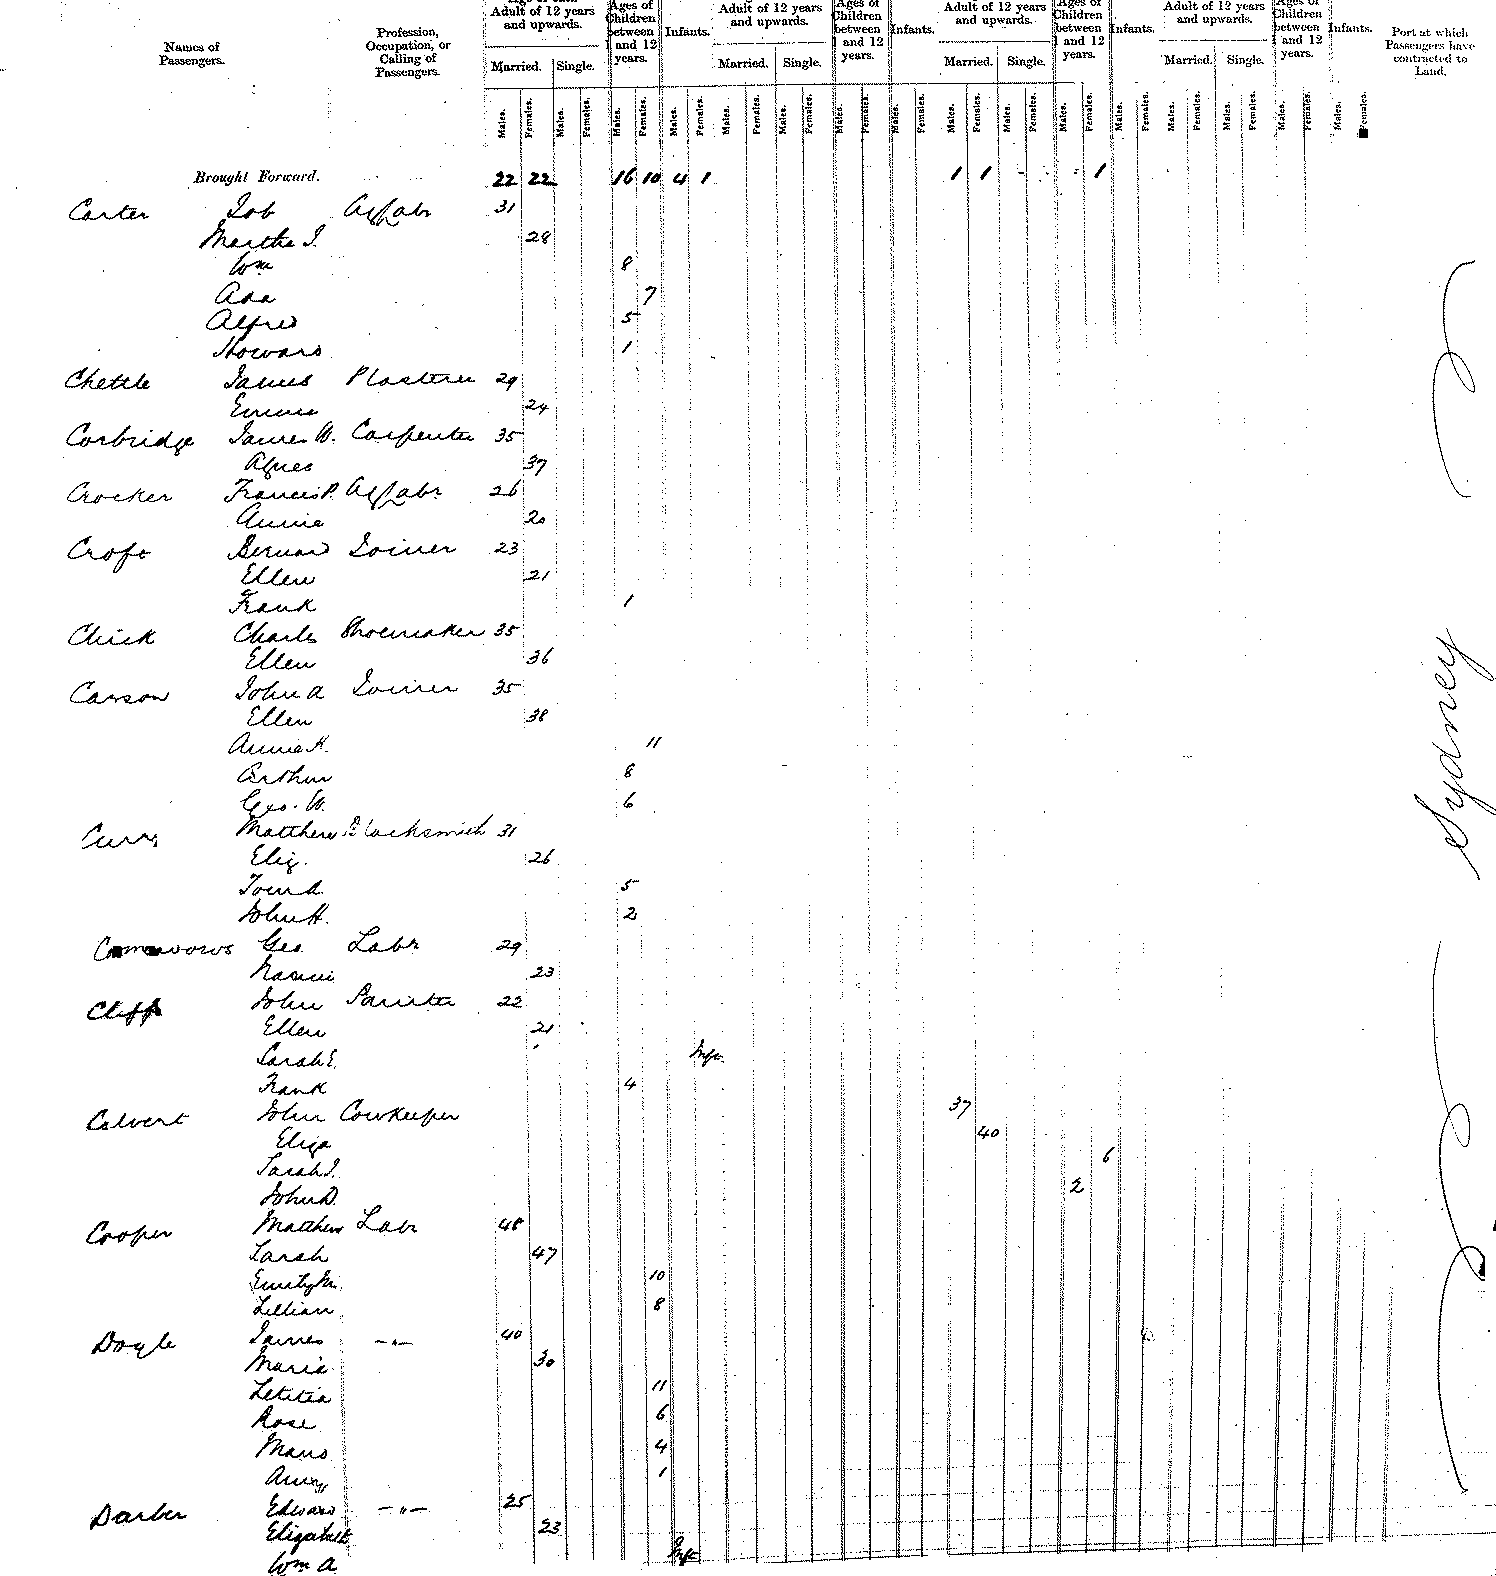 Names of Passengers.
Profession, Occupation, or Calling of Passengers.
Adult of 12 years and upwards.
Married. Single.
Ages of Children between 1 and 12 years.
Infants.
Adult of 12 years and upwards.
Married. Single.
Ages of Children between 1 and 12 years.
Infants.
Adult of 12 years and upwards.
Married. Single.
Ages of Children between 1 and 12 years.
Infants.
Adult of 12 years and upwards.
Married. Single.
Ages of Children between 1 and 12 years.
Infants.
Port at which Passengers have contracted to Land.
Males. Females. Males. Females. Males. Females. Males. Females. Males. Females. Males. Females. Males. Females. Males. Females. Males. Females. Males. Females. Males. Females. Males. Females. Males. Females. Males. Females. Males. Females. Males. Females.
Brought Forward. 22 22 16 10 4 1 1 1 1
Carter Job Ag Labr 31
Martha J. 28
Wm 8
Ada 7
Alfred 5
Howard 1
Chettle James Plasterer 29
Emma 24
Corbridge James W. Carpenter 35
Agnes 37
Crocker Francis P. Ag Labr 26
Annie 20
Croft Bernard Joiner 23
Ellen 21
Frank 1
Chick Charles Shoemaker 35
Ellen 36
Carson John A Joiner 35
Ellen 38
Annie H. 11
Arthur 8
Geo. W. 6
Matthew Blacksmith 31
Eliz. 26
Tom A. 5
John H. 2
Geo. Labr 29
Naomi 23
Cliff John Painter 22
Ellen 21
Sarah E. Inft.
Frank 4
Calvert John Cowkeeper 37
Eliza 40
Sarah J. 6
John D. 2
Cooper Matthew Labr 48
Sarah 47
Emily M. 10
Lillian 8
Doyle James -"- 40
Maria 30
Letitia 11
Rose 6
Maud 4
Amy 1
Darber Edward -"- 25
Elizabeth 23
Wm A Inft
Sydney